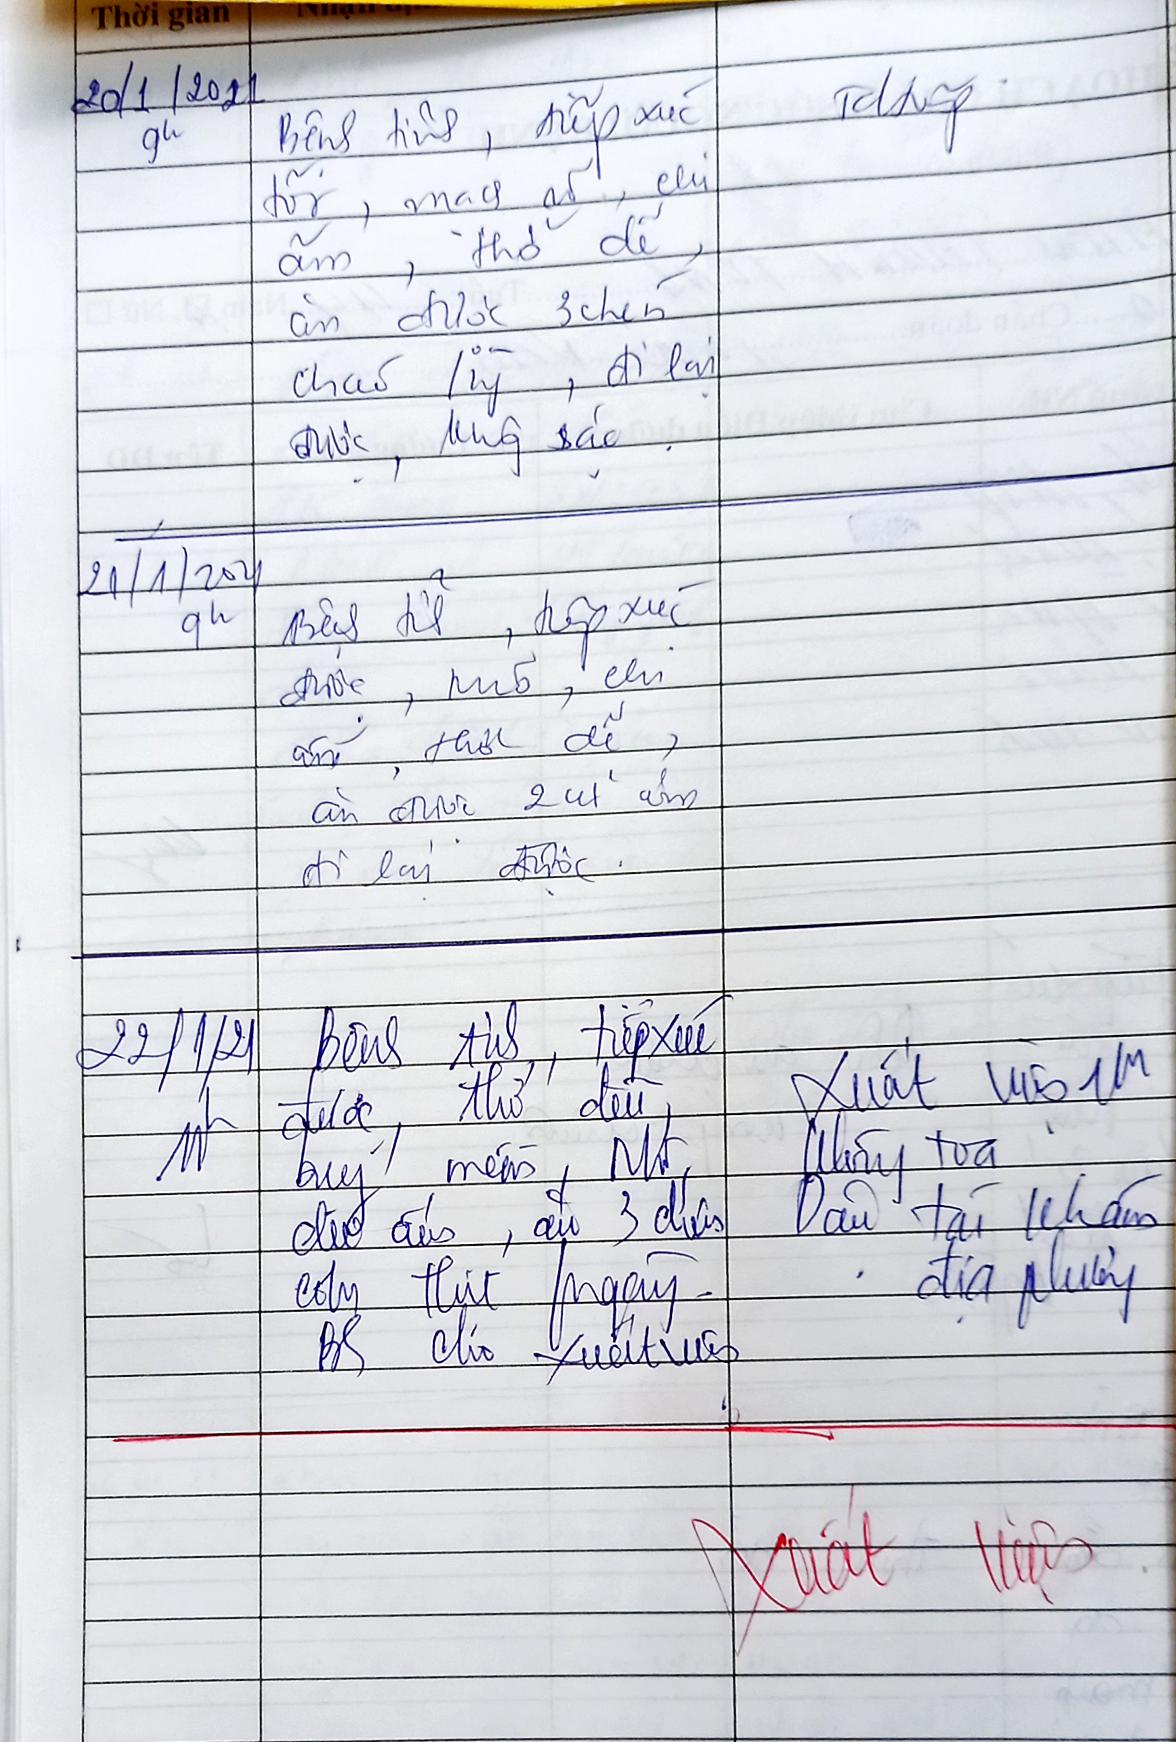 Thời gian
20/1/2021
9h
Bệnh tỉnh, tiếp xúc
tốt, mạch rõ, chi
ấm, thở dễ,
ăn được 3 chén
cháo /ng, đi lại
được, không sốt.
Td tiếp
21/1/2021
9h
Bệnh tỉnh, tiếp xúc
được, chi
ấm, thở dễ,
ăn được 2
đi lại được.
22/1/21
11h
Bệnh tỉnh, tiếp xúc
được, thở đều,
bụng mềm,
chi ấm, ăn 3 chén
cơm thịt /ngày.
BS cho xuất viện
Xuất viện
không toa
Dặn tái khám
địa phương
Xuất viện